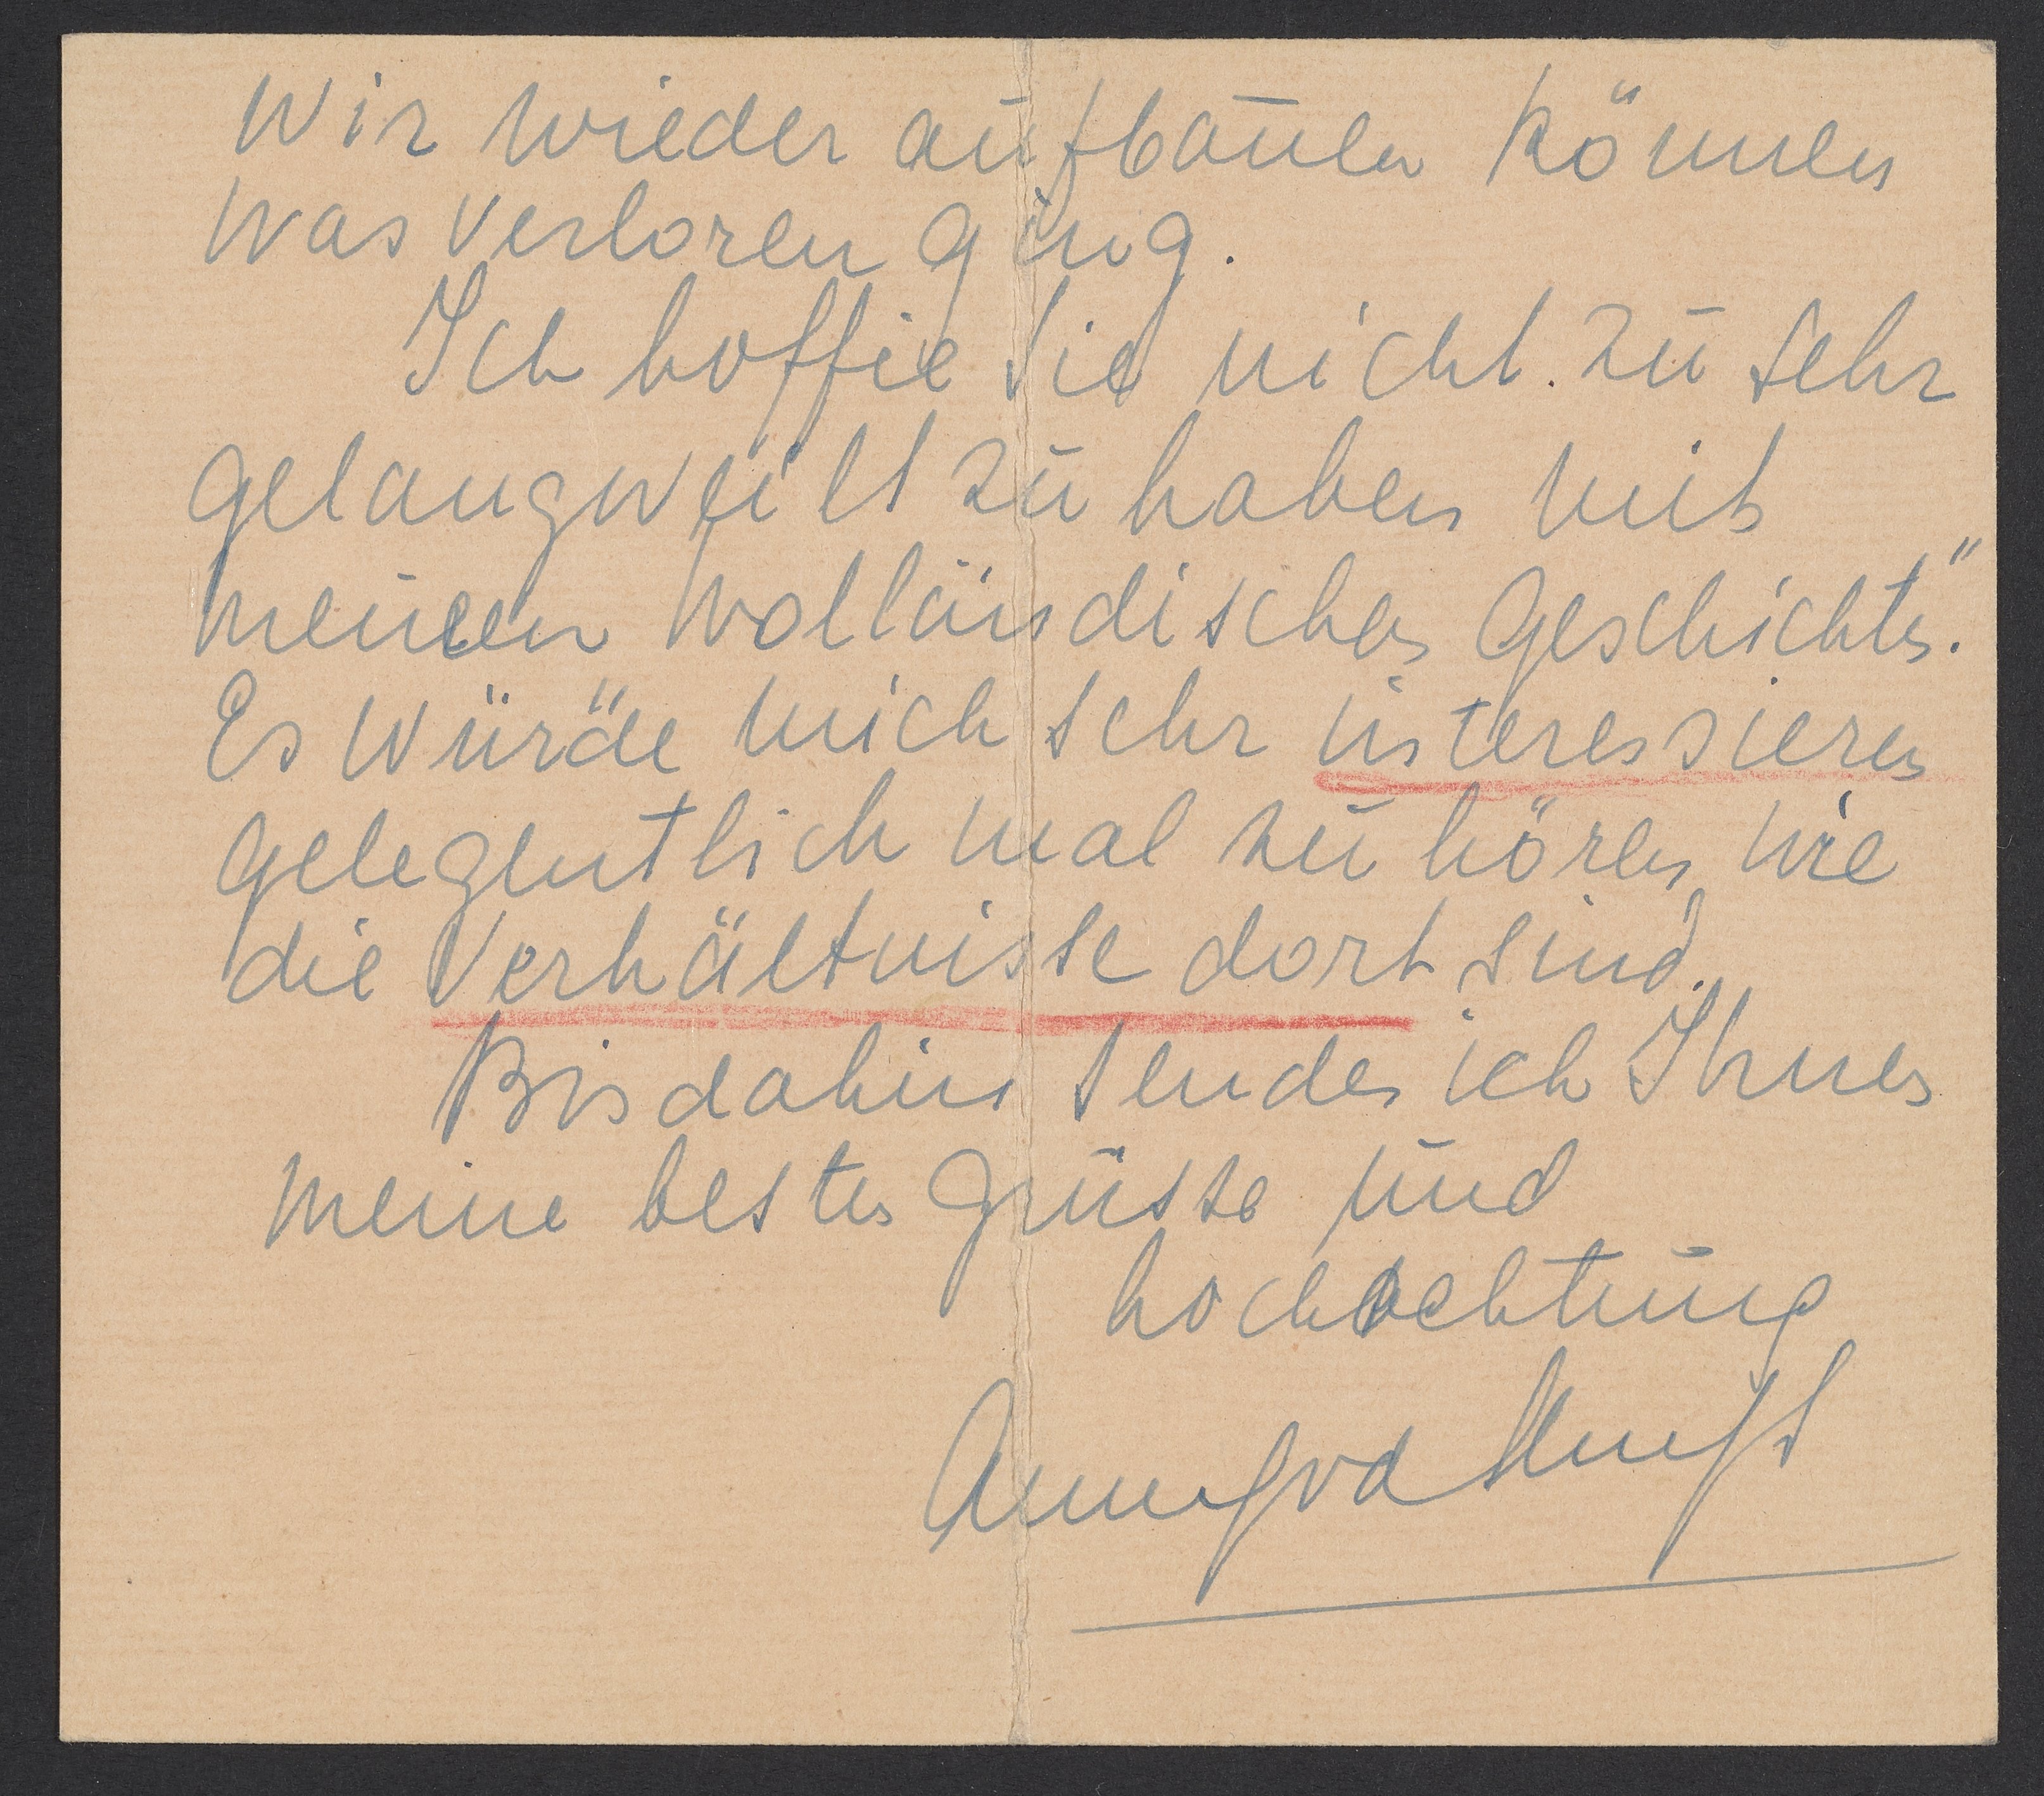 wir wieder aufbauen können
was verloren ging.
Ich hoffe Sie nicht zu sehr
gelangweilt zu haben mit
meinen holländischen Geschichten."
Es würde mich sehr interessieren
gelegentlich mal zu hören wie
die Verhältnisse dort sind.
Bis dahin sende ich Ihnen
meine besten Grüsse und
hochachtung